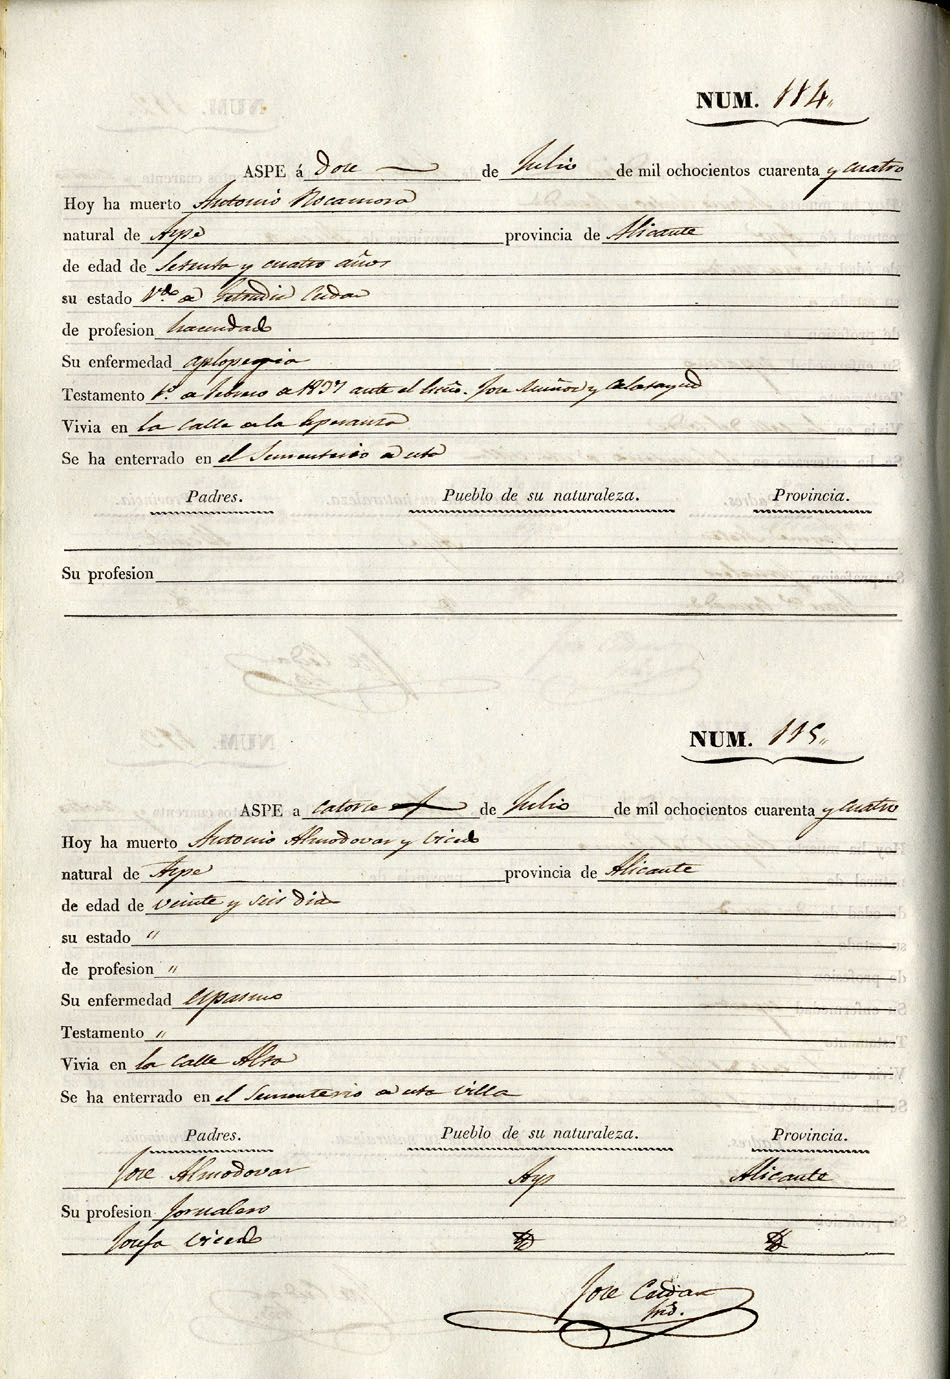 NUM. 114.
ASPE á Dose de Julio de mil ochocientos cuarenta y cuatro
Hoy ha muerto Antonio Rocamora
natural de Aspe provincia de Alicante
de edad de setenta y cuatro años
su estado Vdo. de Cerdan
de profesion hacendado
Su enfermedad
Testamento 1º de Febrero de 1837 ante el Jose Muñoz y Calatayud
Vivia en la Calle de la Esperanza
Se ha enterrado en el Sementerio de esta
Padres. Pueblo de su naturaleza. Provincia.
Su profesion
NUM. 115.
ASPE a catorse de Julio de mil ochocientos cuarenta y cuatro
Hoy ha muerto Antonio Almodovar y Vicedo
natural de Aspe provincia de Alicante
de edad de veinte y seis dias
su estado "
de profesion "
Su enfermedad espasmo
Testamento "
Vivia en la Calle Alta
Se ha enterrado en el Sementerio de esta villa
Padres. Pueblo de su naturaleza. Provincia.
Jose Almodovar Asp Alicante
Su profesion Jornalero
Josefa Vicedo
Jose Cerdan